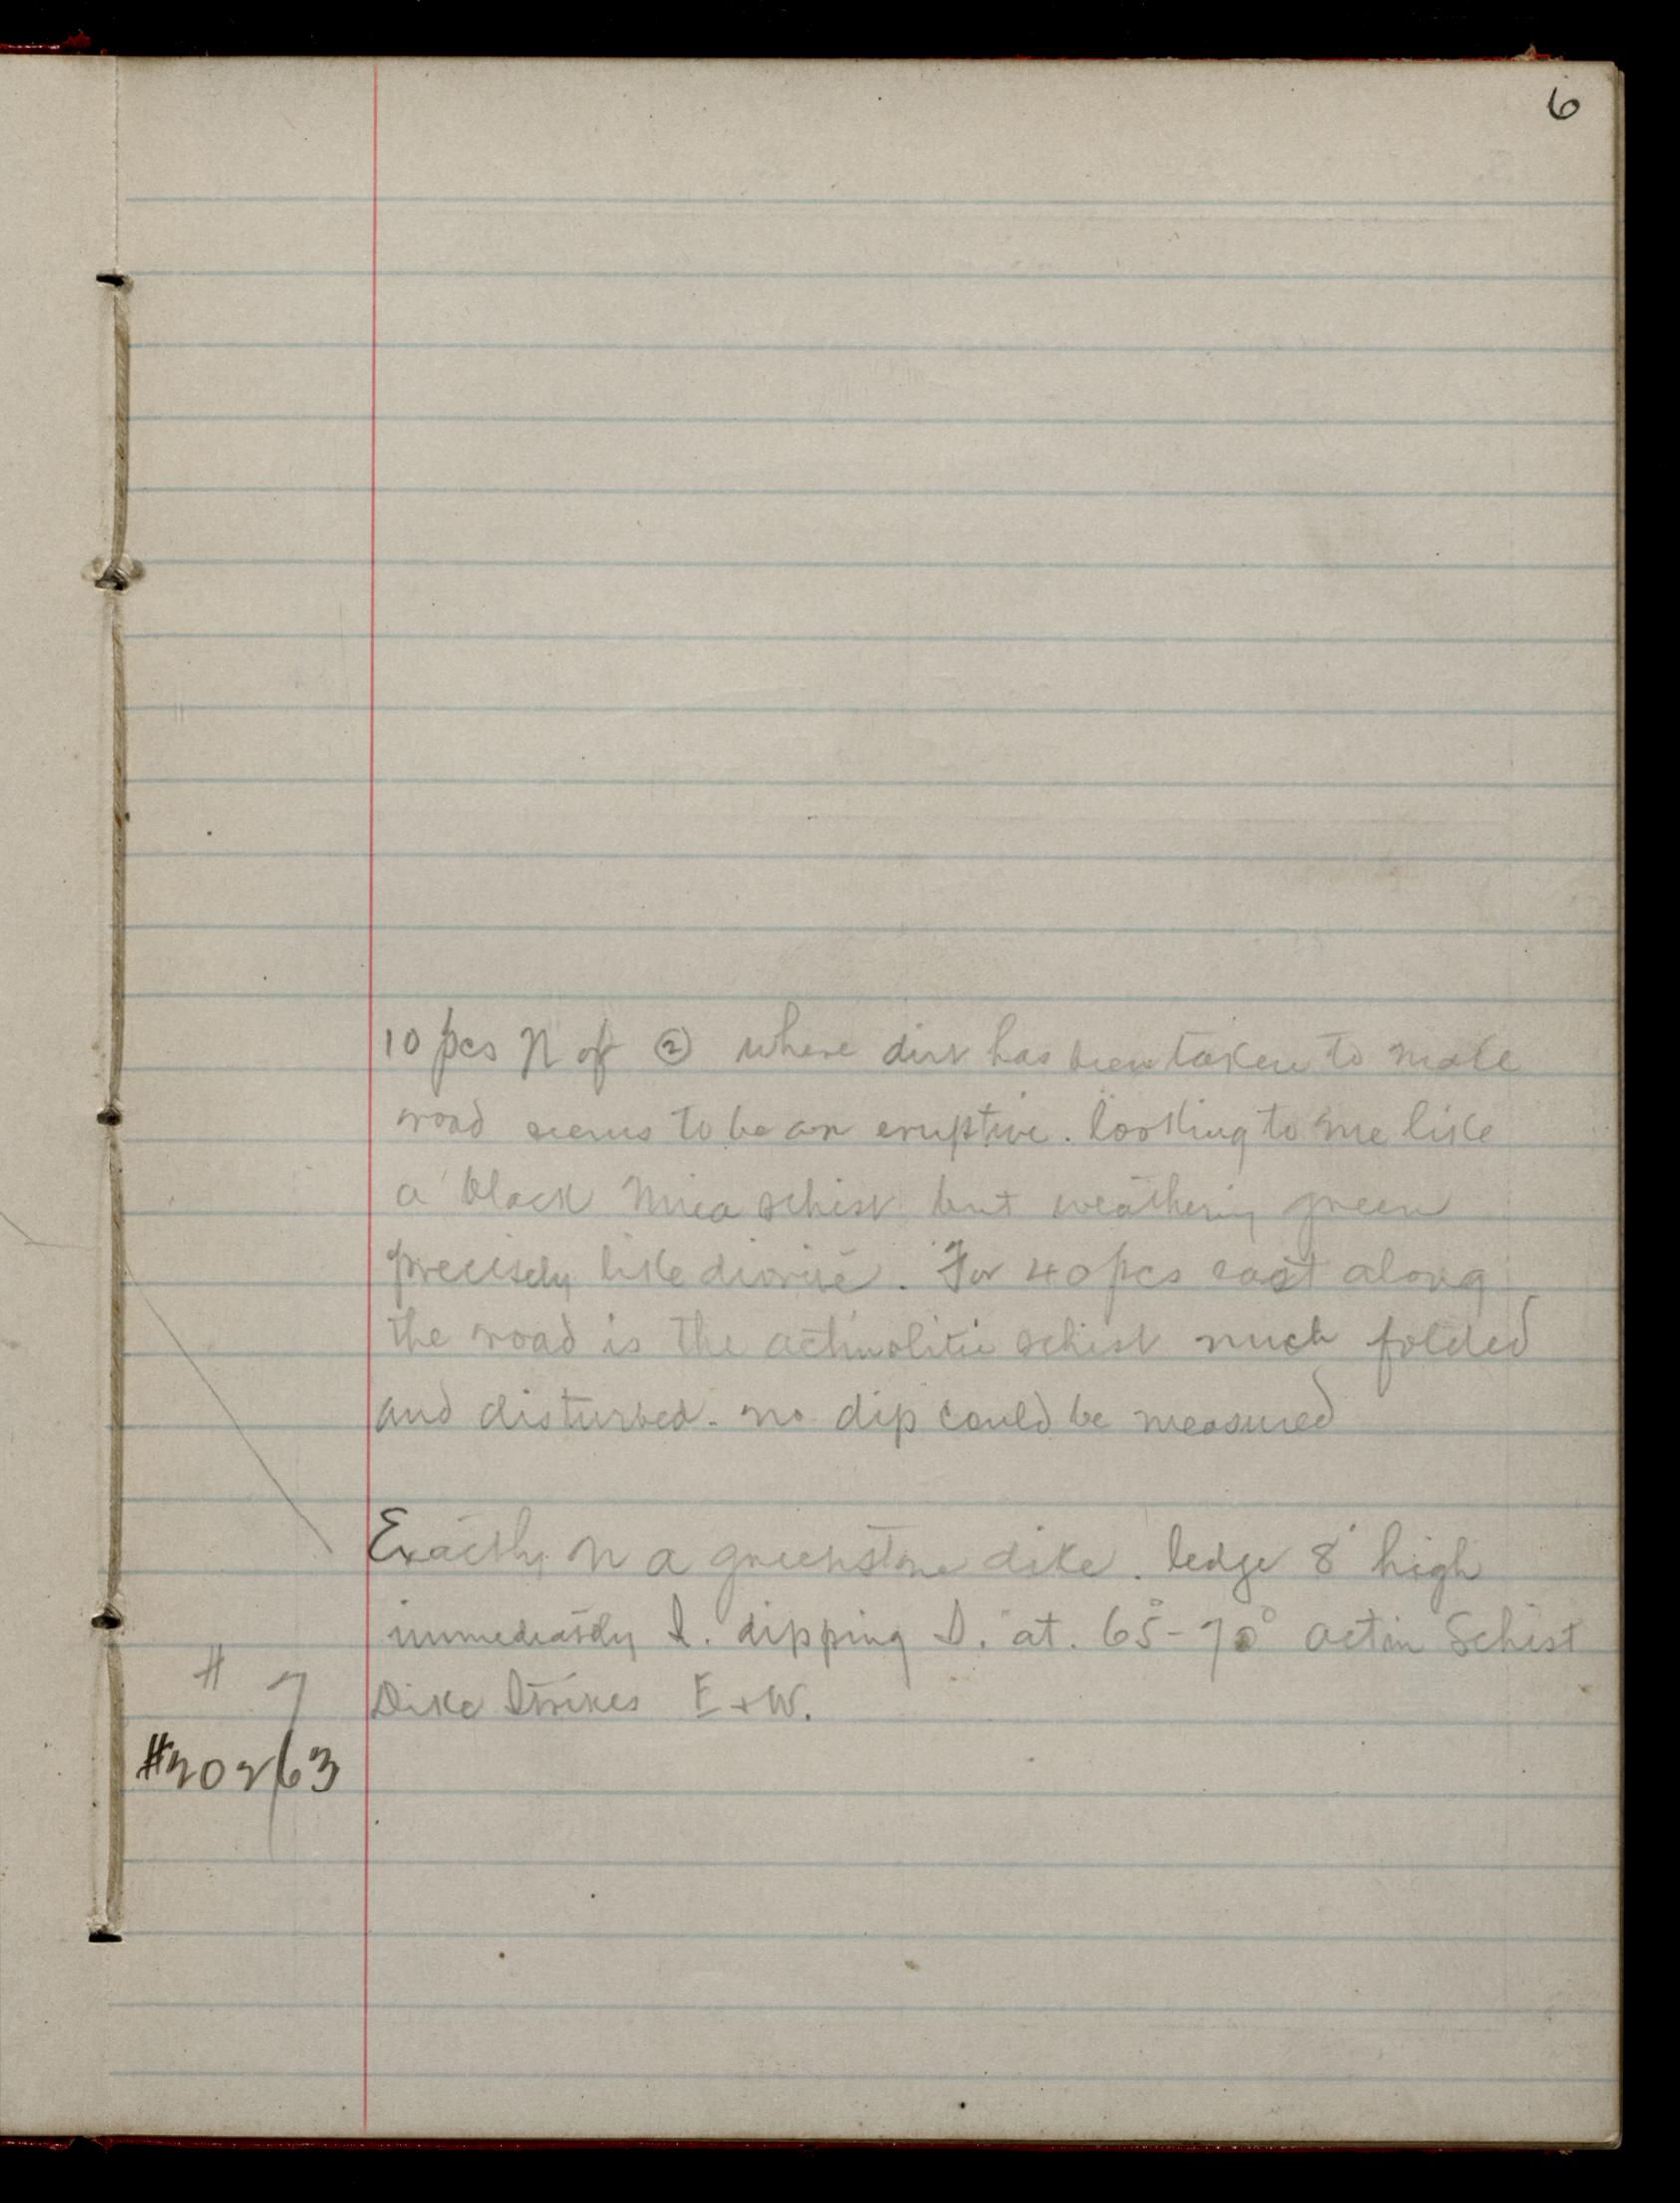 6
10 pcs N of ② where dirt has been taken to make
road seems to be an eruptive. looking to me like
a black mica schist but weathering green
precisely like diorite. For 40 pcs east along
the road is the actinolitic schist much folded
and disturbed - no dip could be measured
Exactly N a greenstone dike. ledge 8' high
immediately S. dipping S. at. 65°-70° actin Schist
# 7 Dike Strikes E + W.
#20263